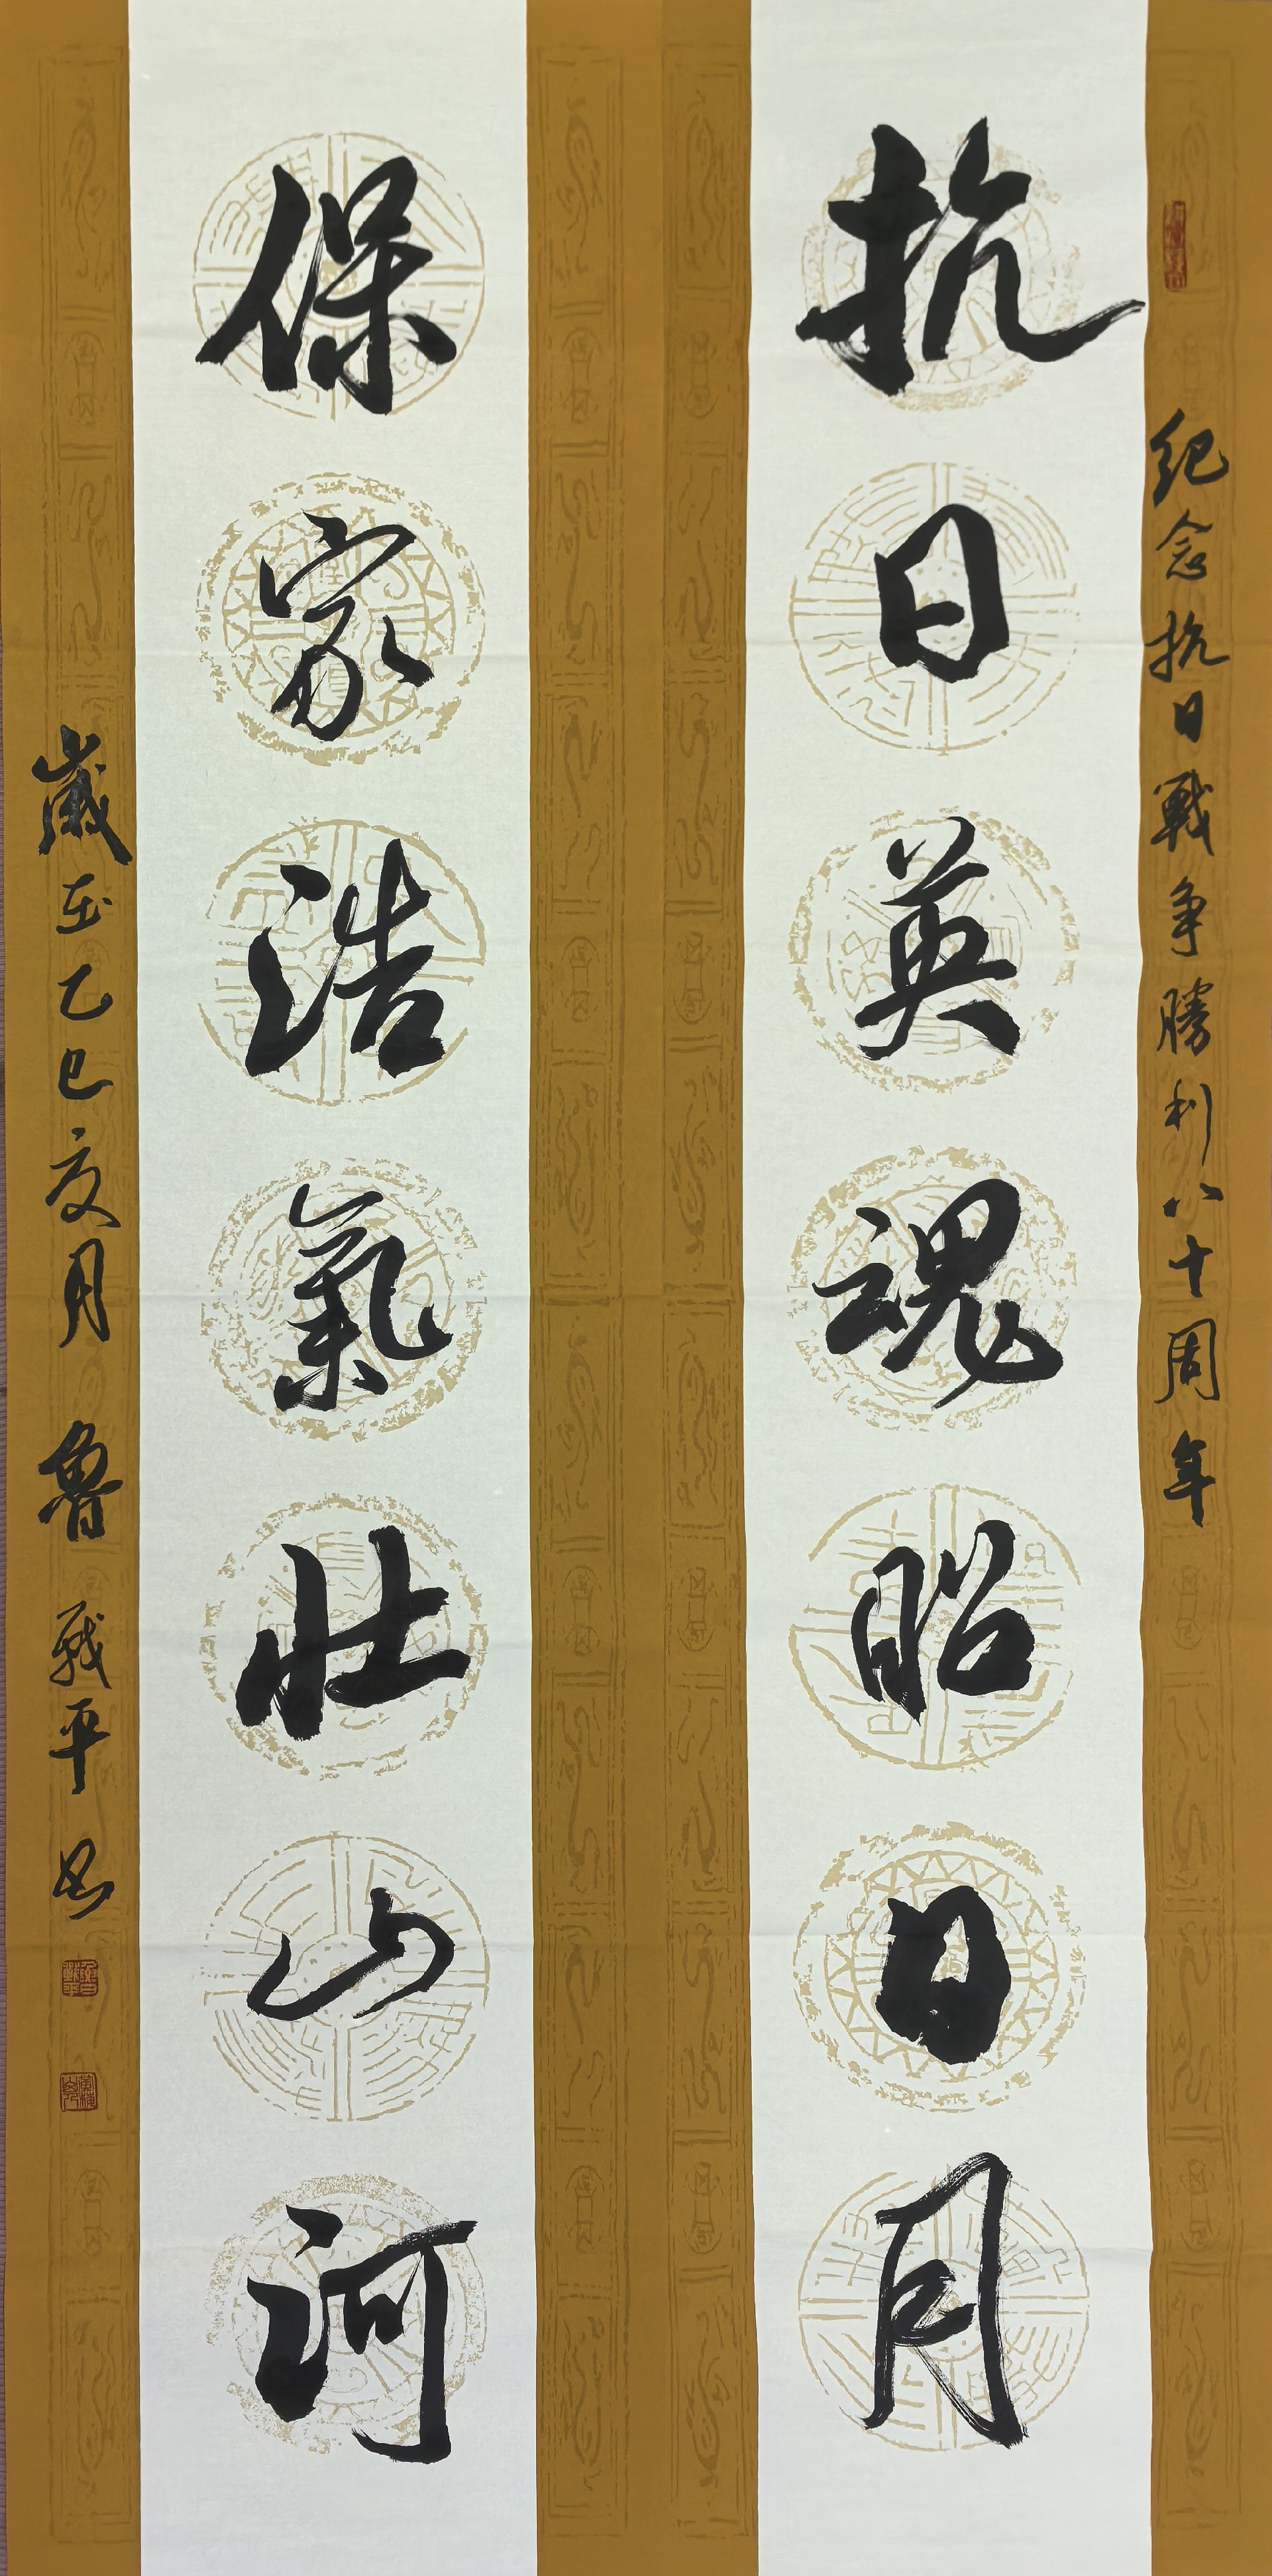 紀念抗日戰争勝利八十周年
抗日英魂昭日月
保家浩氣壯山河
歲在乙巳夏月 魯戰平书